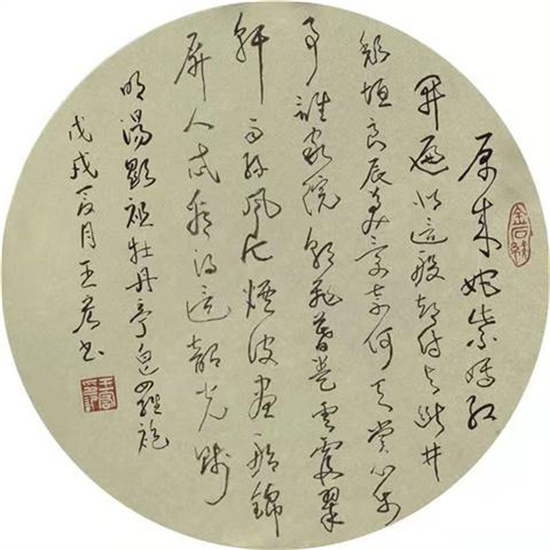 原來姹紫嫣紅
開遍似這般都付與斷井
頹垣良辰美景奈何天賞心樂
事誰家院朝飛暮卷雲霞翠
軒雨絲風片煙波畫船錦
屏人忒看的這韶光賤
明湯顯祖牡丹亭皂羅袍
戊戌夏月王書